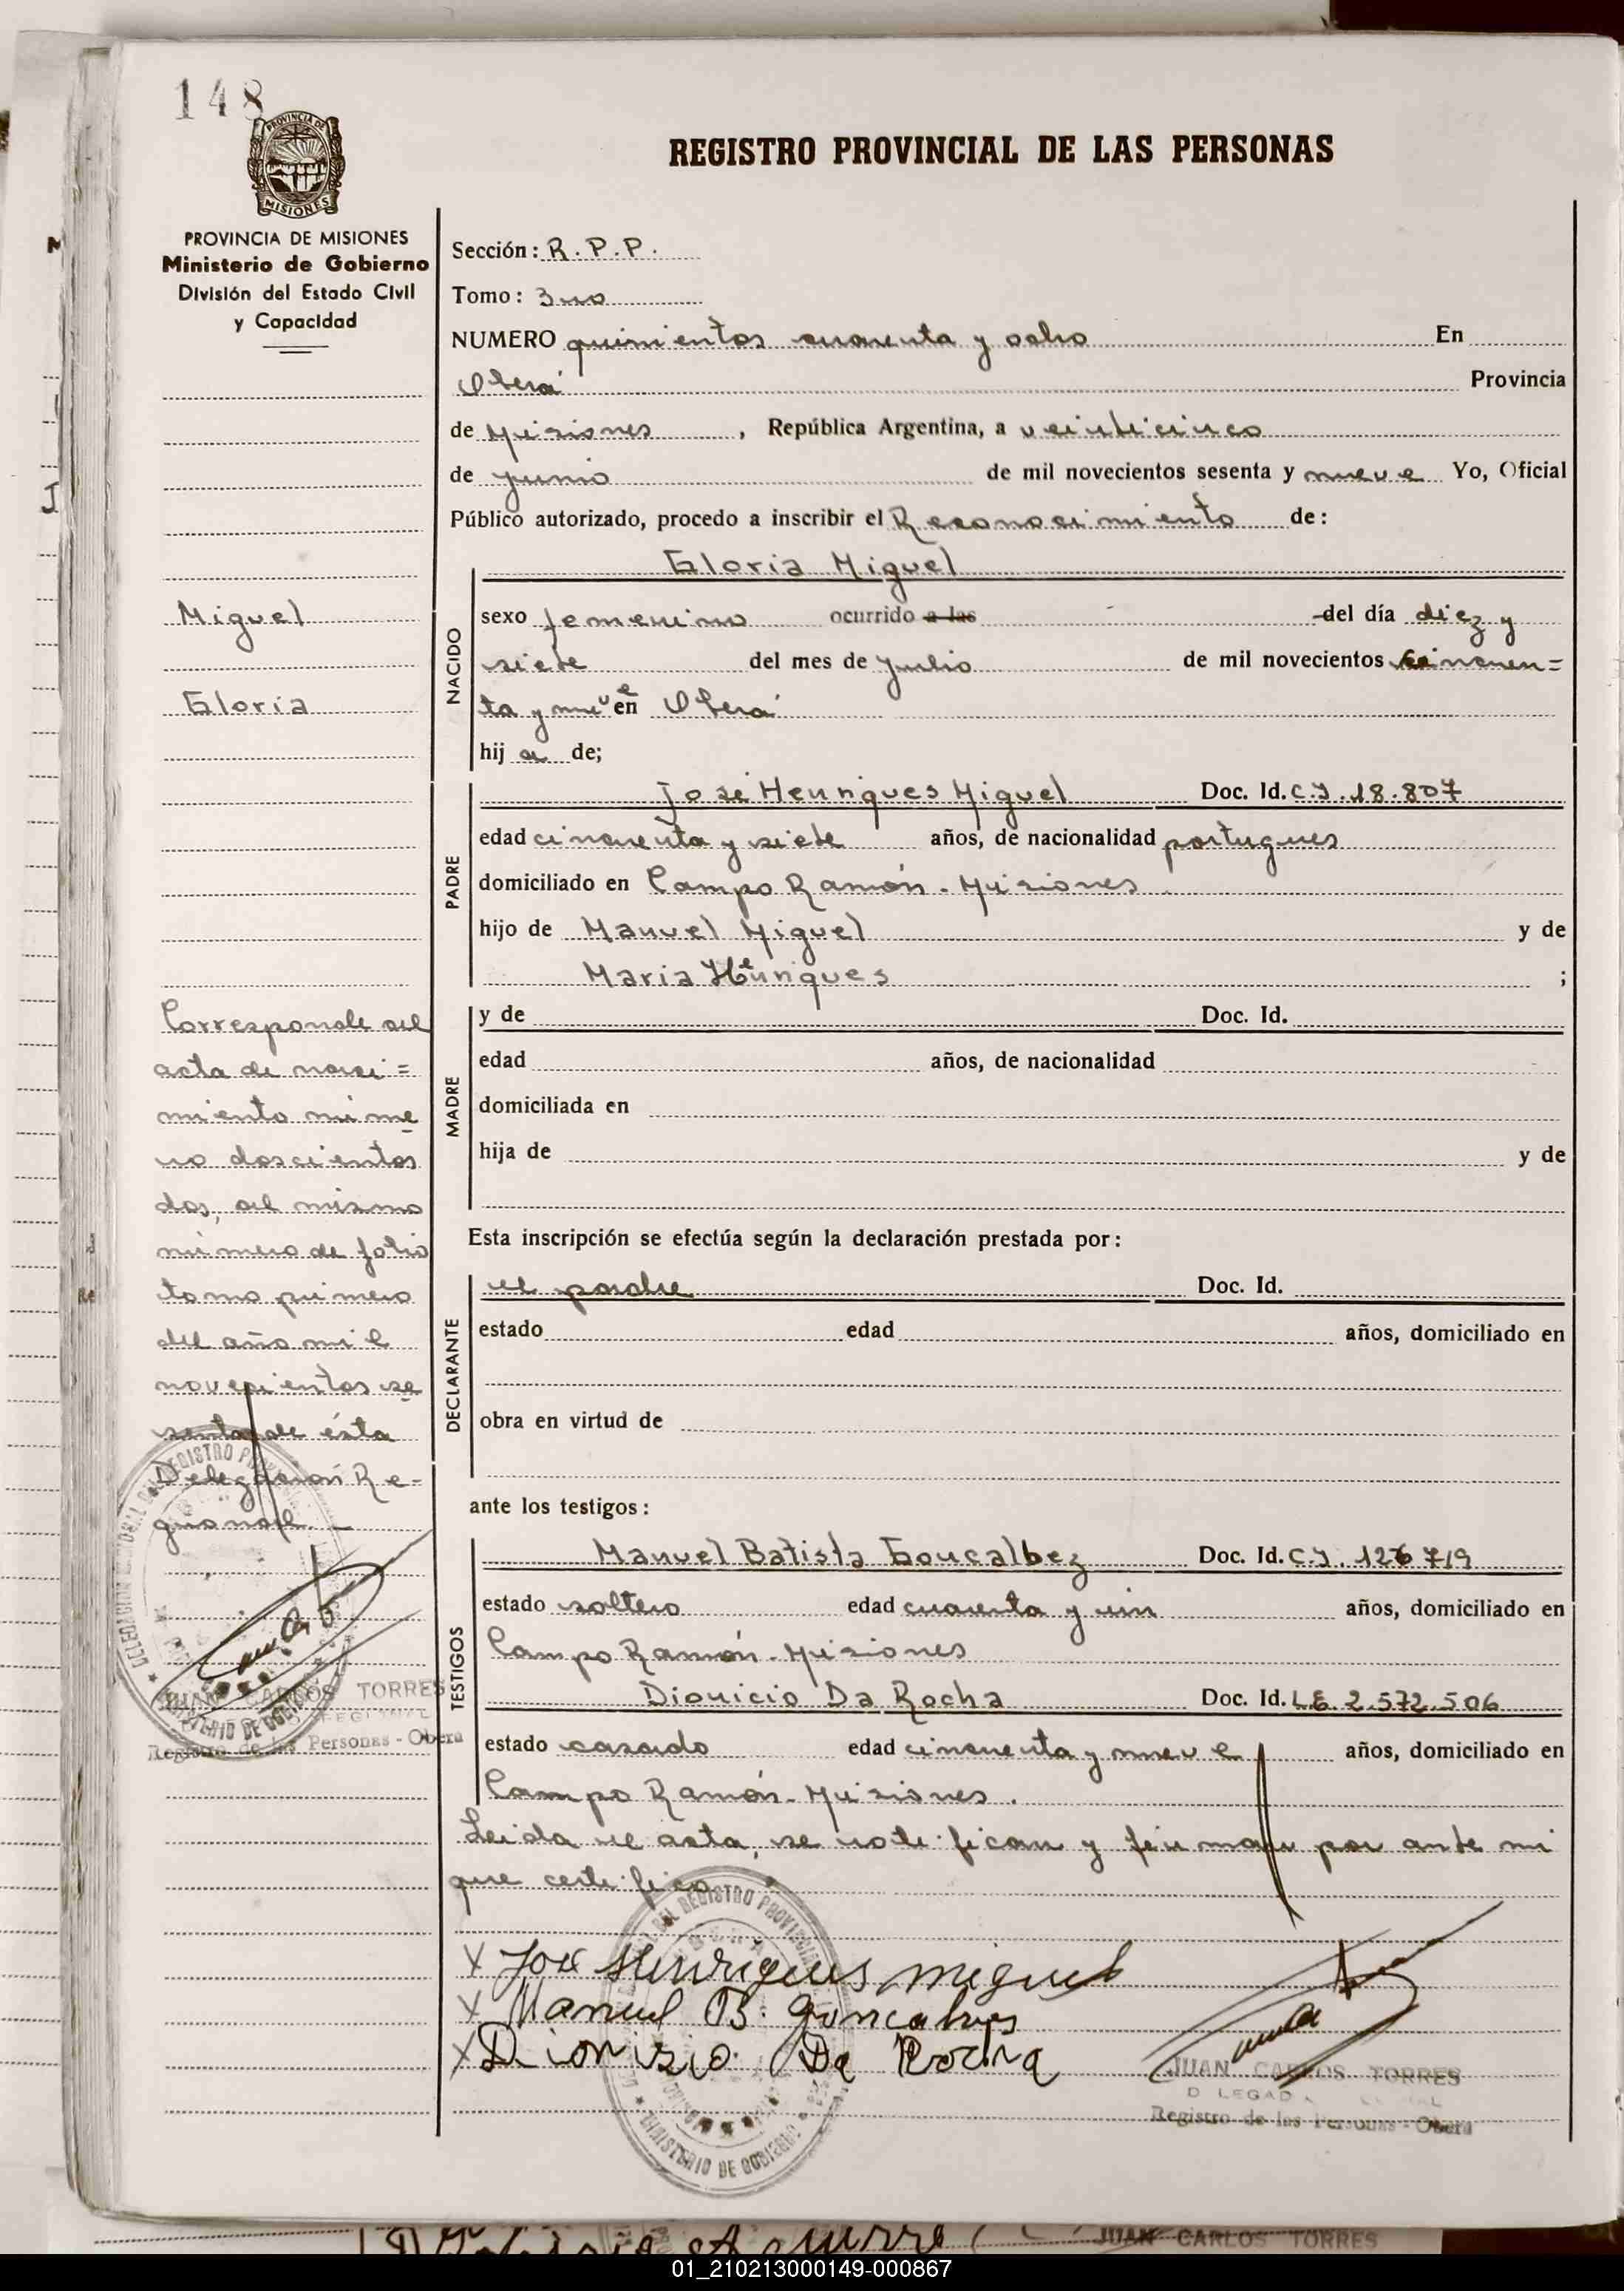 148
PROVINCIA DE
MISIONES
REGISTRO PROVINCIAL DE LAS PERSONAS
PROVINCIA DE MISIONES
Ministerio de Gobierno
División del Estado Civil
y Capacidad
Sección: R.P.P.
Tomo: 3ro
NUMERO quinientos cuarenta y ocho En
Oberá Provincia
de Misiones, República Argentina, a veinticinco
de junio de mil novecientos sesenta y nueve Yo, Oficial
Público autorizado, procedo a inscribir el Reconocimiento de:
Gloria Miguel
Miguel
Gloria
NACIDO
sexo femenino ocurrido a las - del día diez y
siete del mes de julio de mil novecientos cincuen=
ta y nueve en Oberá
hija de;
PADRE
José Henriques Miguel Doc. Id. C.I. 18.807
edad cincuenta y siete años, de nacionalidad portugues
domiciliado en Campo Ramón - Misiones
hijo de Manuel Miguel y de
Maria Henriques ;
MADRE
y de Doc. Id.
edad años, de nacionalidad
domiciliada en
hija de y de
Corresponde al
acta de naci=
miento núme
ro doscientos
dos, al mismo
número de folio
tomo primero
del año mil
novecientos se
senta de ésta
Delegación Re=
gional. -
Esta inscripción se efectúa según la declaración prestada por:
DECLARANTE
el padre Doc. Id.
estado edad años, domiciliado en
obra en virtud de
ante los testigos:
TESTIGOS
Manuel Batista Goncalbez Doc. Id. C.I. 126719
estado soltero edad cuarenta y un años, domiciliado en
Campo Ramón - Misiones
Dionicio Da Rocha Doc. Id. L.E. 2.572.506
estado casado edad cincuenta y nueve años, domiciliado en
Campo Ramón - Misiones.
Leida el acta, se notifican y firman por ante mi
que certifico.
JUAN CARLOS TORRES
Registro de las Personas - Oberá
MINISTERIO DE GOBIERNO
X José Henriques Miguel
X Manuel B. Goncalves
X Dionizio Da Rocha
DEL REGISTRO PROVINCIAL
MINISTERIO DE GOBIERNO
JUAN CARLOS TORRES
Registro de las Personas - Oberá
JUAN CARLOS TORRES
01_210213000149-000867